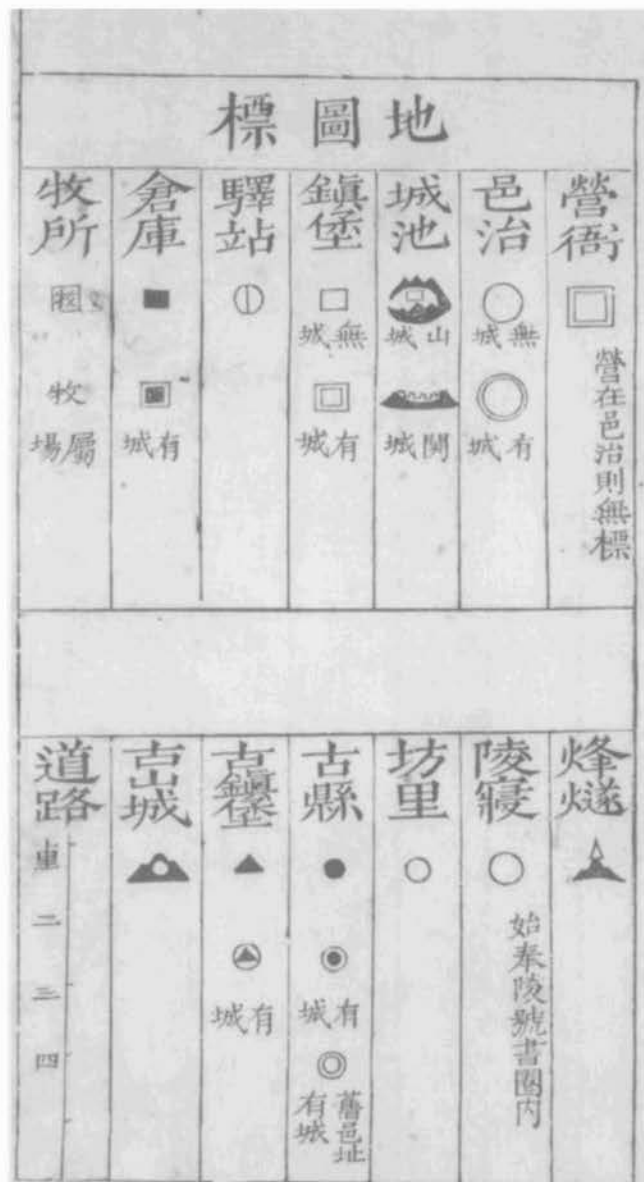 地圖標
營衙
營在邑治則無標
邑治
無城
有城
城池
山城
関城
鎭堡
無城
有城
驛站
倉庫
有城
牧所
牧
屬場
烽燧
陵寢
始奉陵號書圈內
坊里
古縣
有城
舊邑址
有城
古鎭堡
有城
古山城
道路
二
三
四